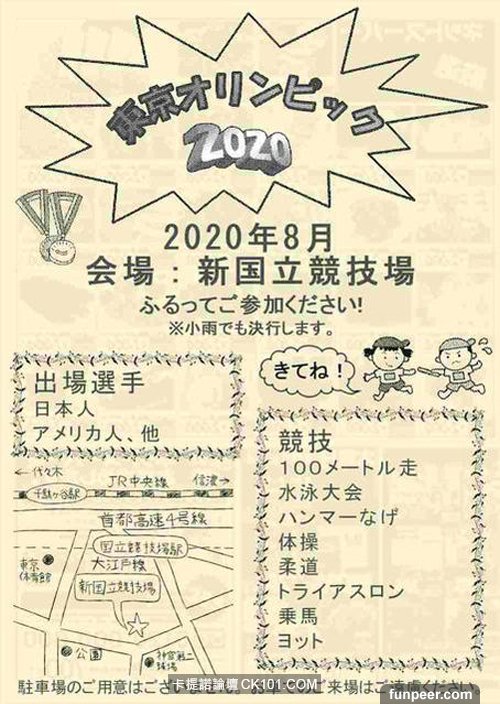 東京オリンピック
2020
2020年8月
会場：新国立競技場
ふるってご参加ください！
※小雨でも決行します。
きてね！
出場選手
日本人
アメリカ人、他
競技
100メートル走
水泳大会
ハンマーなげ
体操
柔道
トライアスロン
乗馬
ヨット
←代々木
JR中央線
信濃→
千駄ヶ谷駅
首都高速4号線
国立競技場駅
大江戸線
東京
体育館
新国立競技場
公園
神宮第二
球場
駐車場のご用意はござ
ご来場はご遠慮ください
卡提諾論壇 CK101.COM
funpeer.com